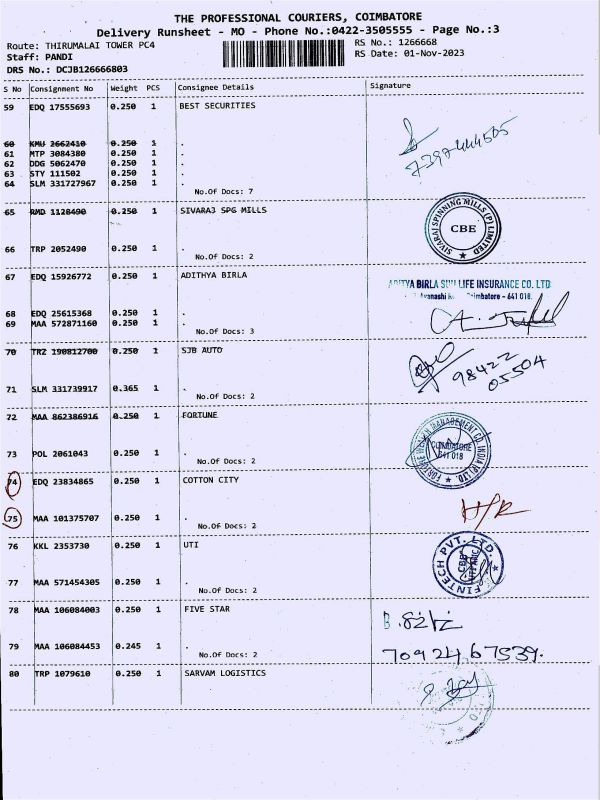 THE PROFESSIONAL COURIERS, COIMBATORE
Delivery Runsheet - MO - Phone No.:0422-3505555 - Page No.:3
Route: THIRUMALAI TOWER PC4
RS No.: 1266668
Staff: PANDI
RS Date: 01-Nov-2023
DRS No.: DCJB126666803
S No Consignment No Weight PCS Consignee Details Signature
59 EDQ 17555693 0.250 1 BEST SECURITIES
60 KMU 2662410 0.250 1 .
61 MTP 3084380 0.250 1 .
62 DDG 5062470 0.250 1 .
63 STY 111502 0.250 1 .
64 SLM 331727967 0.250 1 .
No.Of Docs: 7
7397444505
65 RMD 1128490 0.250 1 SIVARAJ SPG MILLS
SIVARAJ SPINNING MILLS (P) LIMITED
CBE
66 TRP 2052490 0.250 1 .
No.Of Docs: 2
67 EDQ 15926772 0.250 1 ADITHYA BIRLA
ADITYA BIRLA SUN LIFE INSURANCE CO. LTD
Avanashi Coimbatore - 641 018.
68 EDQ 25615368 0.250 1 .
69 MAA 572871160 0.250 1 .
No.Of Docs: 3
70 TRZ 190812700 0.250 1 SJB AUTO
98422
05504
71 SLM 331739917 0.365 1 .
No.Of Docs: 2
72 MAA 862386916 0.250 1 FORTUNE
COIMBATORE
641 018
73 POL 2061043 0.250 1 .
No.Of Docs: 2
74 EDQ 23834865 0.250 1 COTTON CITY
75 MAA 101375707 0.250 1 .
No.Of Docs: 2
76 KKL 2353730 0.250 1 UTI
FINTECH PVT. LTD.
77 MAA 571454305 0.250 1 .
No.Of Docs: 2
78 MAA 106084003 0.250 1 FIVE STAR
79 MAA 106084453 0.245 1 .
No.Of Docs: 2
7092467539.
80 TRP 1079610 0.250 1 SARVAM LOGISTICS